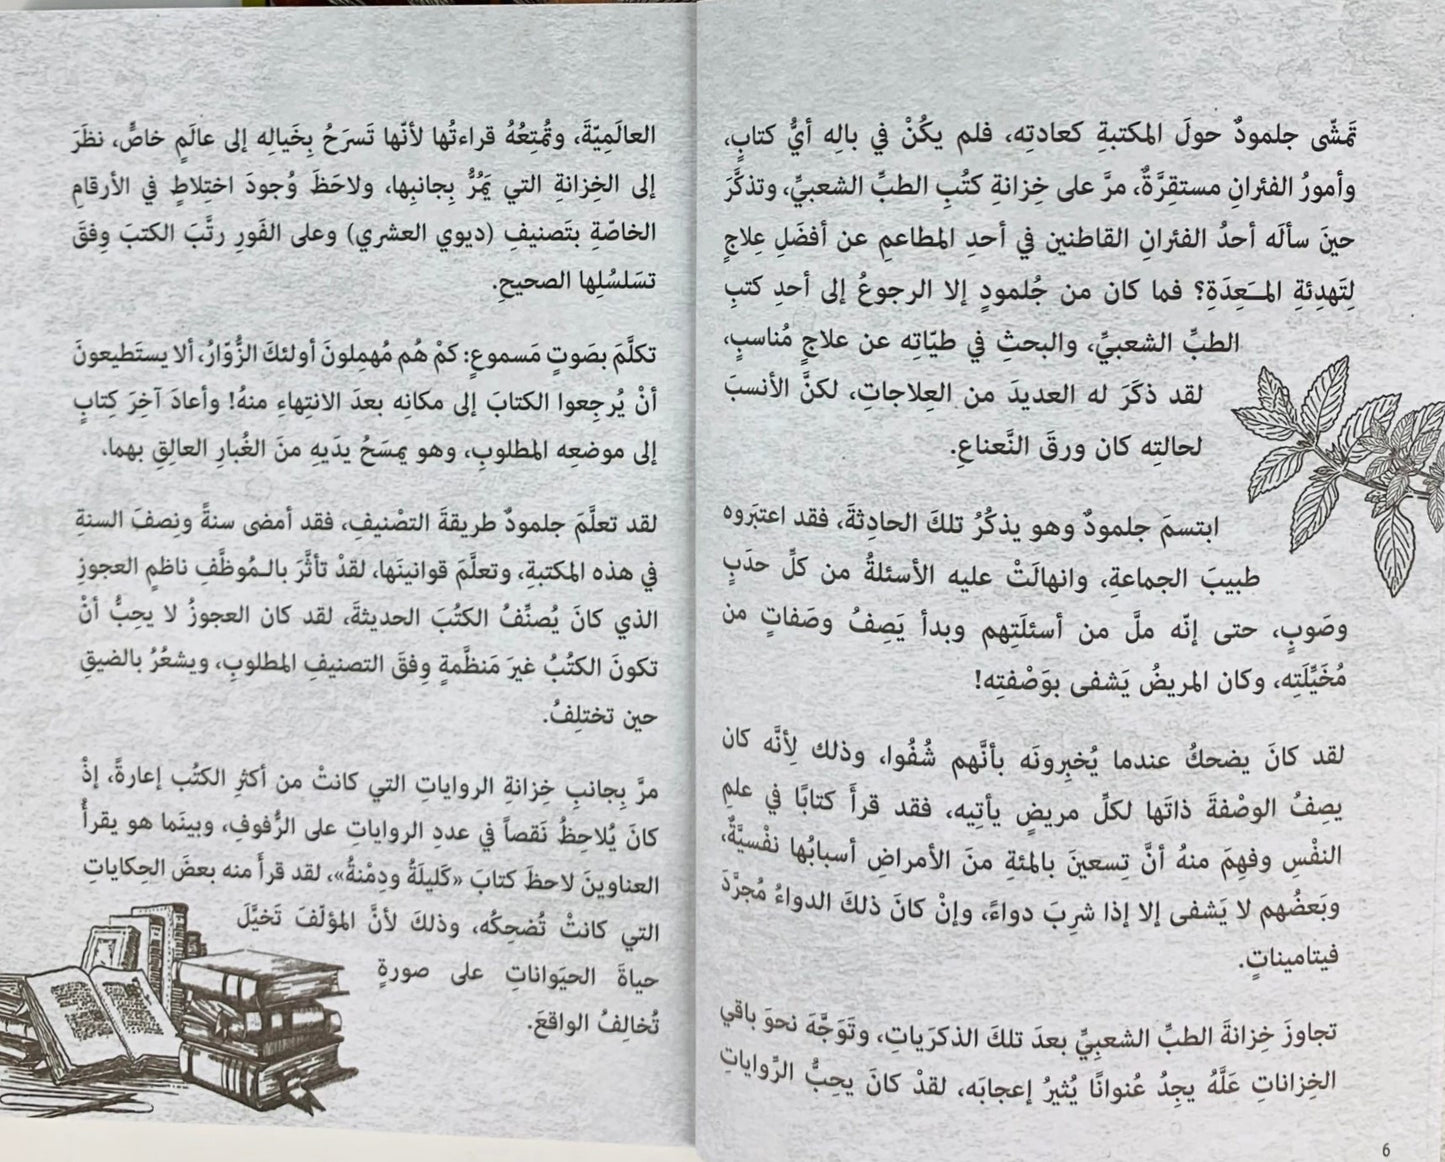 تَمَشّى جلمودٌ حولَ المكتبةِ كعادتِه، فلم يكُنْ في بالِه أيُّ كتابٍ،
وأمورُ الفئرانِ مستقِرَّةٌ، مرَّ على خِزانةِ كتُبِ الطبِّ الشعبيِّ، وتذكَّرَ
حينَ سألَه أحدُ الفئرانِ القاطنين في أحدِ المطاعمِ عن أفضَلِ عِلاجٍ
لِتَهدِئةِ المـَعِدَةِ؟ فما كان من جُلمودٍ إلا الرجوعُ إلى أحدِ كتبِ
الطبِّ الشعبيِّ، والبحثِ في طيّاتِه عن علاجٍ مُناسبٍ،
لقد ذكَرَ له العديدَ من العِلاجاتِ، لكنَّ الأنسبَ
لحالتِه كان ورقَ النَّعناعِ.
ابتسمَ جلمودٌ وهو يذكُرُ تلكَ الحادِثةَ، فقد اعتبَروه
طبيبَ الجماعةِ، وانهالَتْ عليه الأسئلةُ من كلِّ حدَبٍ
وصَوبٍ، حتى إنّه ملَّ من أسئلَتِهم وبدأ يَصِفُ وصَفاتٍ من
مُخَيِّلَتِه، وكان المريضُ يَشفى بوَصْفتِه!
لقد كانَ يضحكُ عندما يُخبِرونَه بأنَّهم شُفُوا، وذلك لِأنَّه كان
يصِفُ الوصْفةَ ذاتَها لكلِّ مريضٍ يأتِيه، فقد قرأَ كتابًا في علمِ
النفْسِ وفهِمَ منهُ أنَّ تِسعينَ بالمئةِ منَ الأمراضِ أسبابُها نفْسيَّةٌ،
وبَعضُهم لا يَشفى إلا إذا شرِبَ دواءً، وإنْ كانَ ذلكَ الدواءُ مُجرَّدَ
فيتاميناتٍ.
تجاوزَ خِزانةَ الطبِّ الشعبِيِّ بعدَ تلكَ الذكرَياتِ، وتَوَجَّهَ نحوَ باقي
الخِزاناتِ عَلَّهُ يجِدُ عُنوانًا يُثيرُ إعجابَه، لقدْ كانَ يحِبُّ الرِّواياتِ
6
العالَمِيّةَ، وتُمتِعُهُ قراءتُها لأنّها تَسرَحُ بِخَيالِه إلى عالَمٍ خاصٍّ، نظَرَ
إلى الخِزانةِ التي يَمُرُّ بِجانبِها، ولاحَظَ وُجودَ اختِلاطٍ في الأرقامِ
الخاصّةِ بتَصنيفِ (ديوي العشري) وعلى الفَورِ رتَّبَ الكتبَ وِفقَ
تسَلسُلِها الصحيحِ.
تكلَّمَ بصَوتٍ مَسموعٍ: كمْ هُم مُهمِلونَ أولئكَ الزُّوّارُ، ألا يستَطيعونَ
أنْ يُرجِعوا الكتابَ إلى مكانه بعدَ الانتهاءِ منهُ! وأعادَ آخِرَ كِتابٍ
إلى موضعِه المطلوبِ، وهو يمسَحُ يدَيهِ منَ الغُبارِ العالِقِ بهما.
لقد تعلَّمَ جلمودٌ طريقةَ التصْنيفِ، فقد أمضى سنةً ونِصفَ السنةِ
في هذه المكتبةِ، وتعلَّمَ قوانينَها، لقدْ تأثَّرَ بالـمُوظَّفِ ناظمٍ العجوزِ
الذي كانَ يُصنِّفُ الكتُبَ الحديثةَ، لقد كان العجوزُ لا يحِبُّ أنْ
تكونَ الكتُبُ غيرَ مَنظَّمةٍ وِفقَ التصنيفِ المطلوبِ، ويشعُرُ بالضيقِ
حين تختلِفُ.
مرَّ بِجانبِ خِزانةِ الرواياتِ التي كانتْ من أكثرِ الكتُب إعارةً، إذْ
كانَ يُلاحِظُ نَقصاً في عددِ الرواياتِ على الرُّفوفِ، وبينَما هو يقرأُ
العناوينَ لاحظَ كتابَ «كَليلَةُ ودِمْنةُ»، لقد قرأَ منه بعضَ الحِكاياتِ
التي كانتْ تُضحِكُه، وذلكَ لأنَّ المؤلّفَ تَخيَّلَ
حياةَ الحيَواناتِ على صورةٍ
تُخالِفُ الواقعَ.